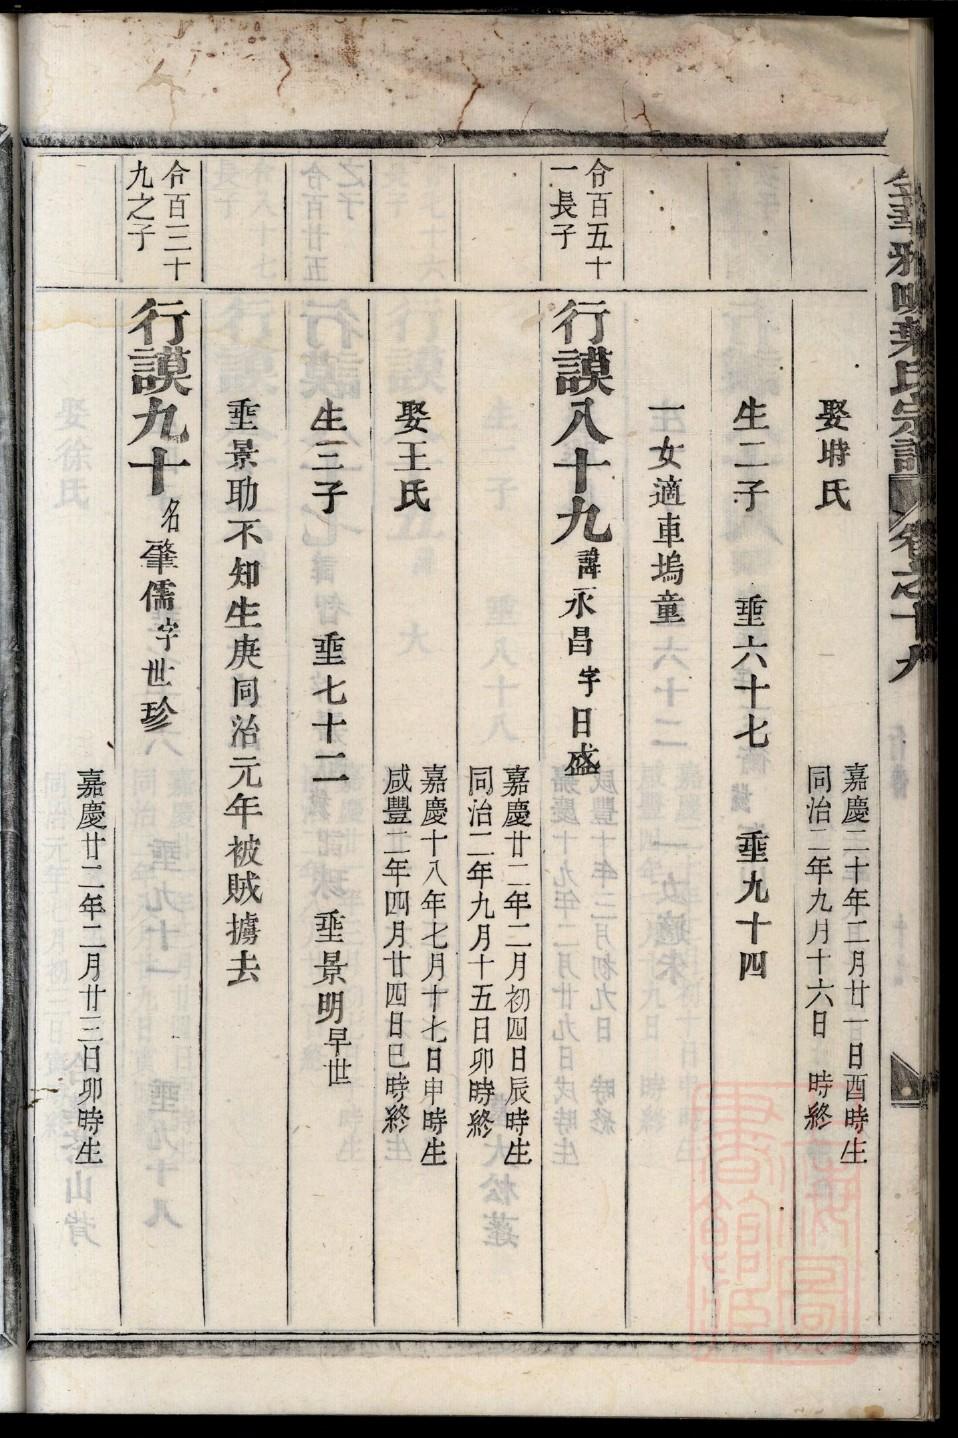 金華雅畈葉氏宗譜 卷之十九
娶時氏
嘉慶二十年二月廿一日酉時生
同治二年九月十六日 時終
生二子 垂六十七 垂九十四
一女適車塢童
令百五十
一長子
行謨八十九 諱永昌字日盛
嘉慶廿二年二月初四日辰時生
同治二年九月十五日卯時終
娶王氏
嘉慶十八年七月十七日申時生
咸豐二年四月廿四日巳時終
生三子 垂七十二 垂景明早世
垂景助不知生庚同治元年被賊擄去
令百三十
九之子
行謨九十 名肇儒字世珍
嘉慶廿二年二月廿三日卯時生